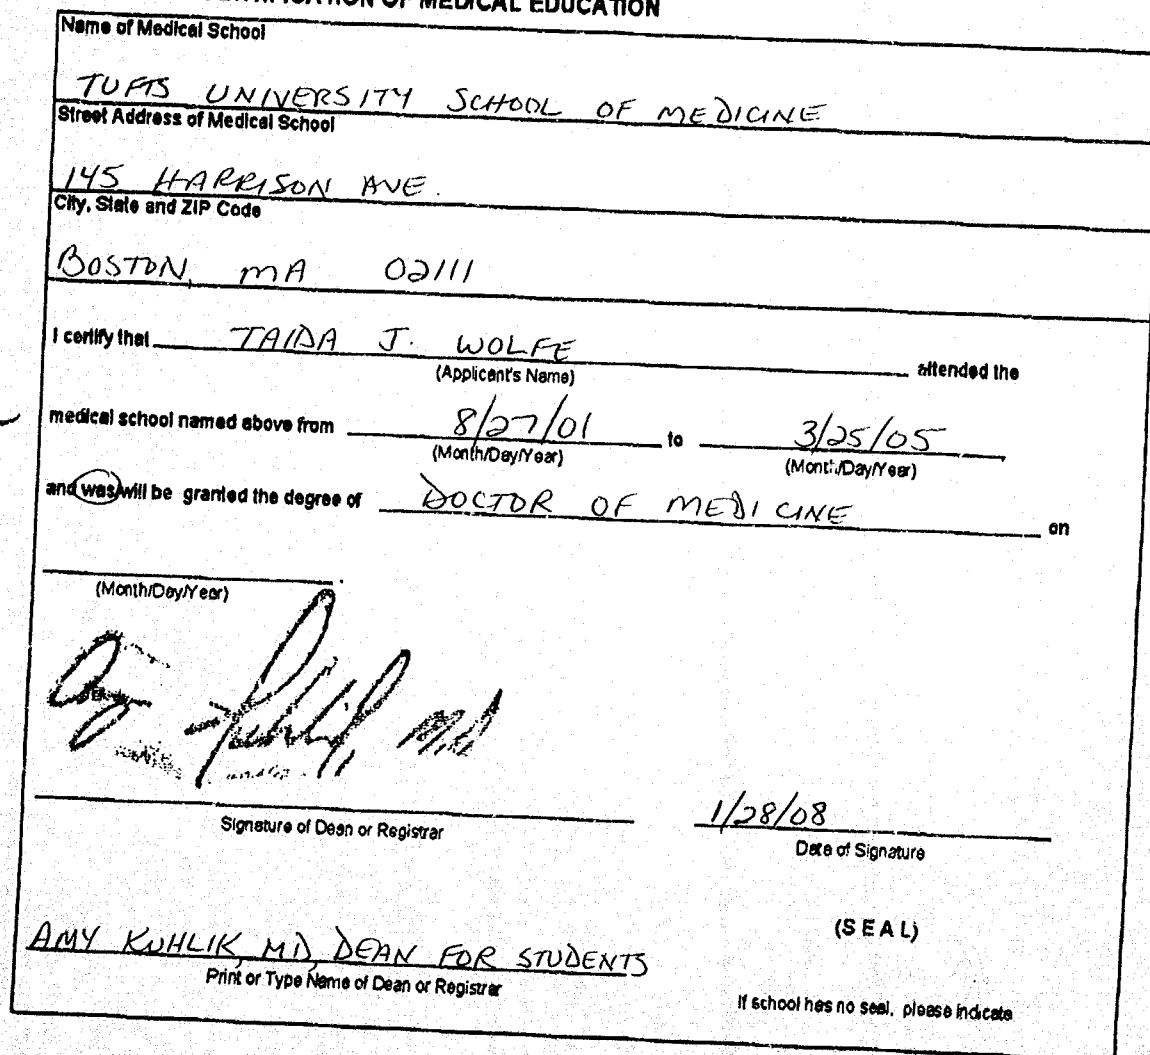 CERTIFICATION OF MEDICAL EDUCATION
Name of Medical School
TUFTS UNIVERSITY SCHOOL OF MEDICINE
Street Address of Medical School
145 HARRISON AVE.
City, State and ZIP Code
BOSTON, MA 02111
I certify that TAIDA J. WOLFE attended the
(Applicant's Name)
medical school named above from 8/27/01 to 3/25/05
(Month/Day/Year) (Month/Day/Year)
and was/will be granted the degree of DOCTOR OF MEDICINE on
(Month/Day/Year)
Amy Kuhlik, M.D.
1/28/08
Signature of Dean or Registrar
Date of Signature
(SEAL)
AMY KUHLIK, MD, DEAN FOR STUDENTS
Print or Type Name of Dean or Registrar
If school has no seal, please indicate